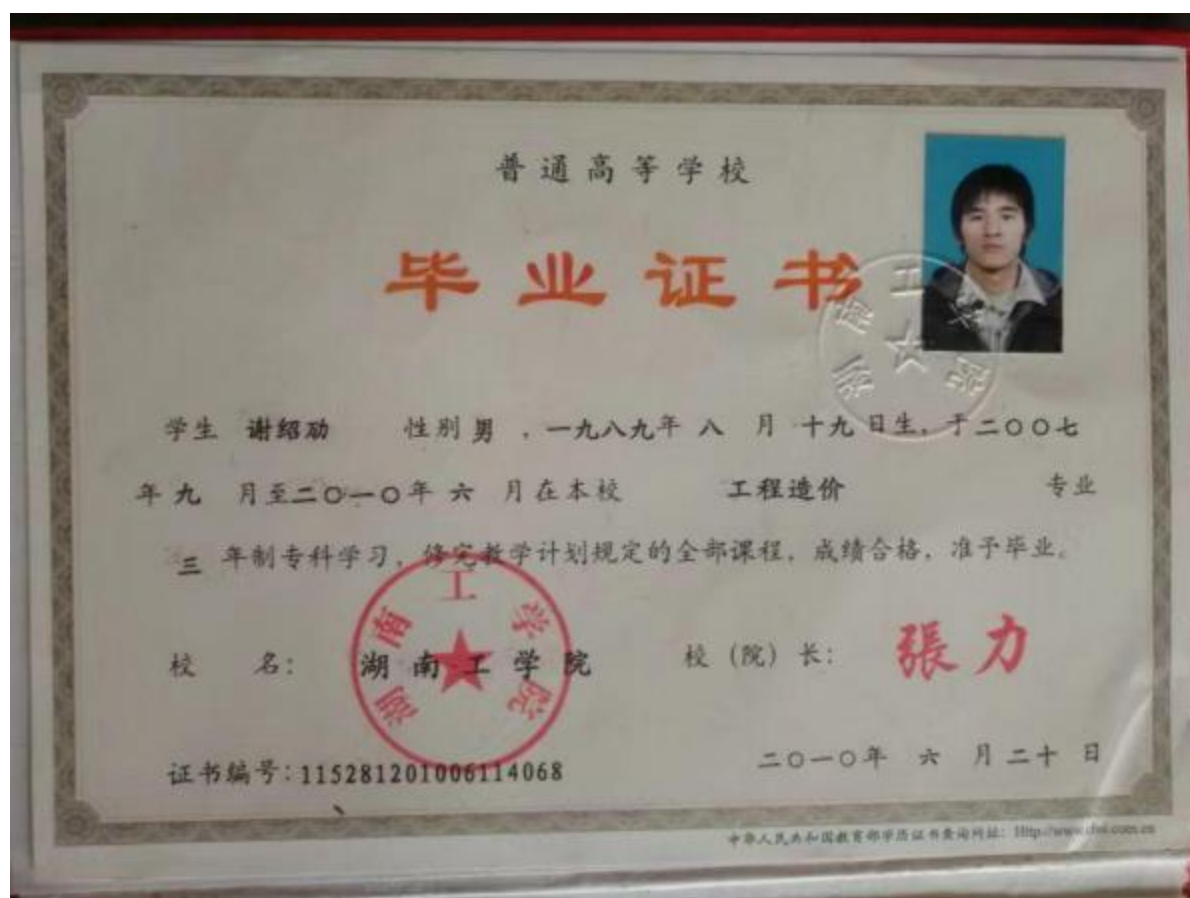 普通高等学校
毕业证书
学生 谢绍劢 性别 男 ，一九八九年 八 月 十九 日生，于二〇〇七
年 九 月至二〇一〇年 六 月在本校 工程造价 专业
三 年制专科学习，修完教学计划规定的全部课程，成绩合格，准予毕业。
校 名： 湖南工学院 校（院）长： 張力
湖南工学院
湖南工学院
证书编号：115281201006114068 二〇一〇年 六 月二十 日
中华人民共和国教育部学历证书查询网址：